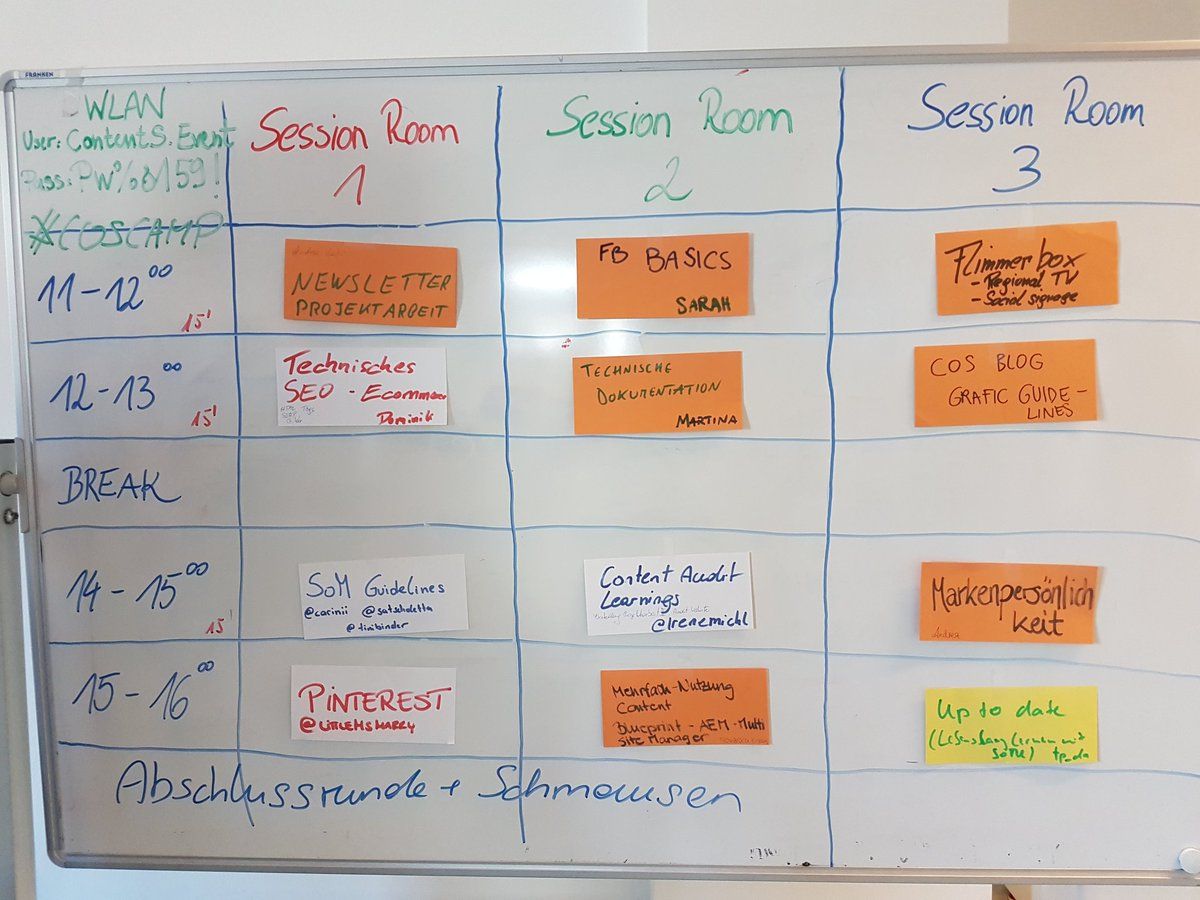 FRANKEN
WLAN
User: ContentS.Event
Pass: PW%8159!
#COSCAMP
Session Room
1
Session Room
2
Session Room
3
11-12⁰⁰
15'
NEWSLETTER
PROJEKTARBEIT
FB BASICS
SARAH
Flimmerbox
- Regional TV
- Social signage
12-13⁰⁰
15'
Technisches
SEO - Ecommerce
Dominik
TECHNISCHE
DOKUMENTATION
MARTINA
COS BLOG
GRAFIC GUIDE-
LINES
BREAK
14-15⁰⁰
15'
SoM Guidelines
@carinii @satscholetta
@tinibinder
Content Audit
Learnings
@Irenemichl
Markenpersönlich
keit
Andrea
15-16⁰⁰
PINTEREST
@LITTLEMSHARRY
Mehrfach-Nutzung
Content
Blueprint - AEM - Multi
Site Manager
Up to date
(Lebenslang Lernen mit
SoMe) tp_da
Abschlussrunde + Schmausen